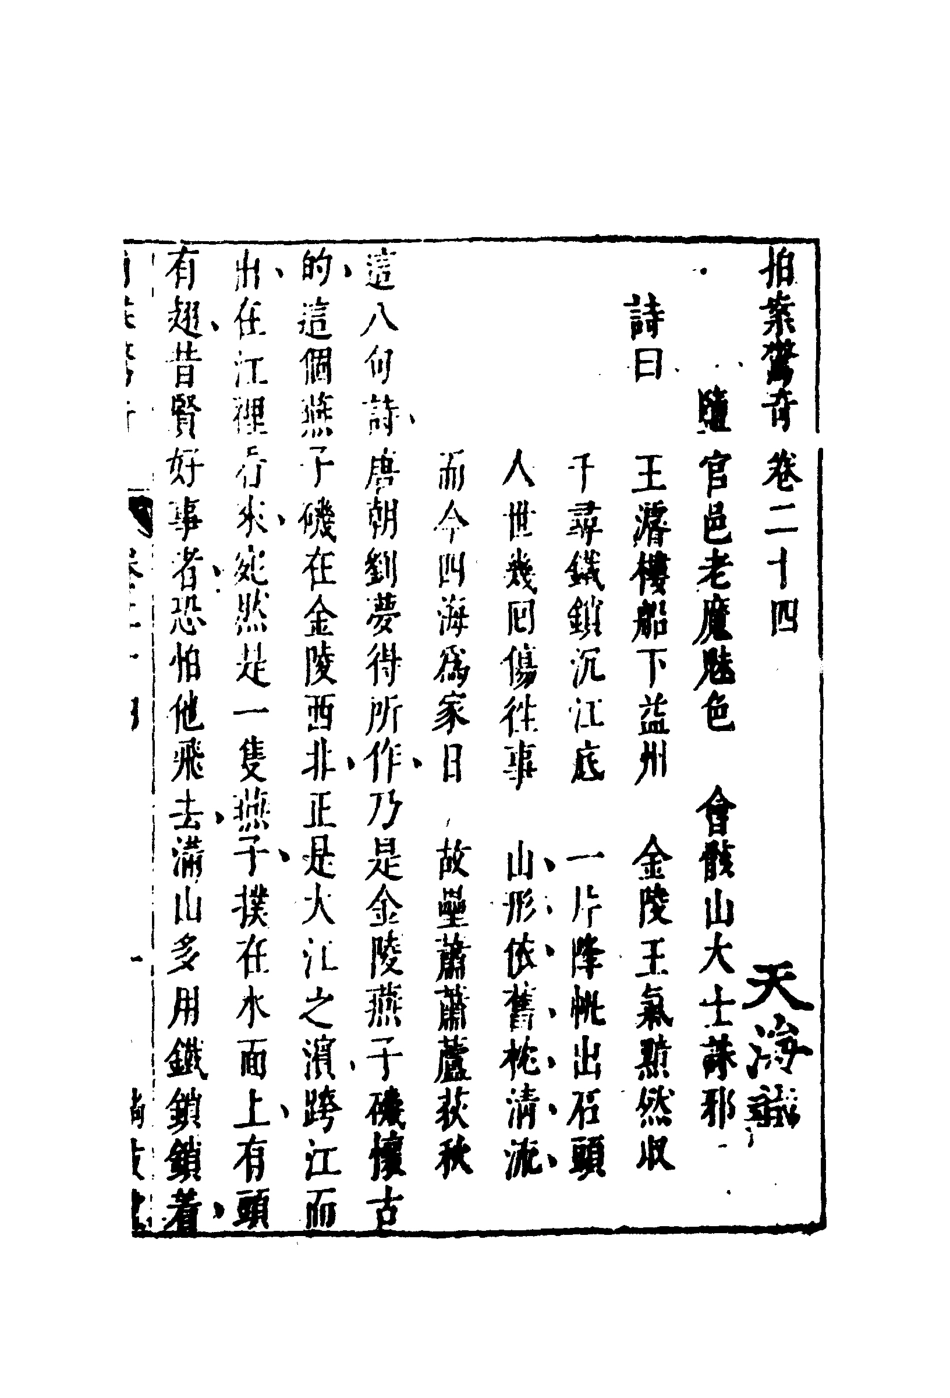 拍案驚奇卷二十四
天海識
鹽官邑老魔魅色　會骸山大士誅邪
詩曰
王濬樓船下益州　金陵王氣黯然收
千尋鐵鎖沉江底　一片降帆出石頭
人世幾回傷往事　山形依舊枕清流
而今四海為家日　故壘蕭蕭蘆荻秋
這八句詩、唐朝劉夢得所作、乃是金陵燕子磯懷古
的、這個燕子磯在金陵西北、正是大江之濱、跨江而
出、在江裡看來、宛然是一隻燕子、撲在水面上、有頭
有翅、昔賢好事者、恐怕他飛去、滿山多用鐵鎖鎖着、
卷二十四
一